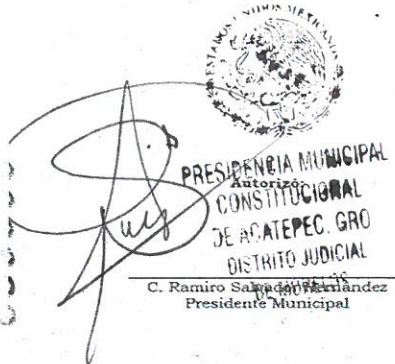 ESTADOS UNIDOS MEXICANOS
PRESIDENCIA MUNICIPAL
Autorizó:
CONSTITUCIONAL
DE ACATEPEC. GRO
DISTRITO JUDICIAL
DE MORELOS
C. Ramiro Salvador Hernández
Presidente Municipal